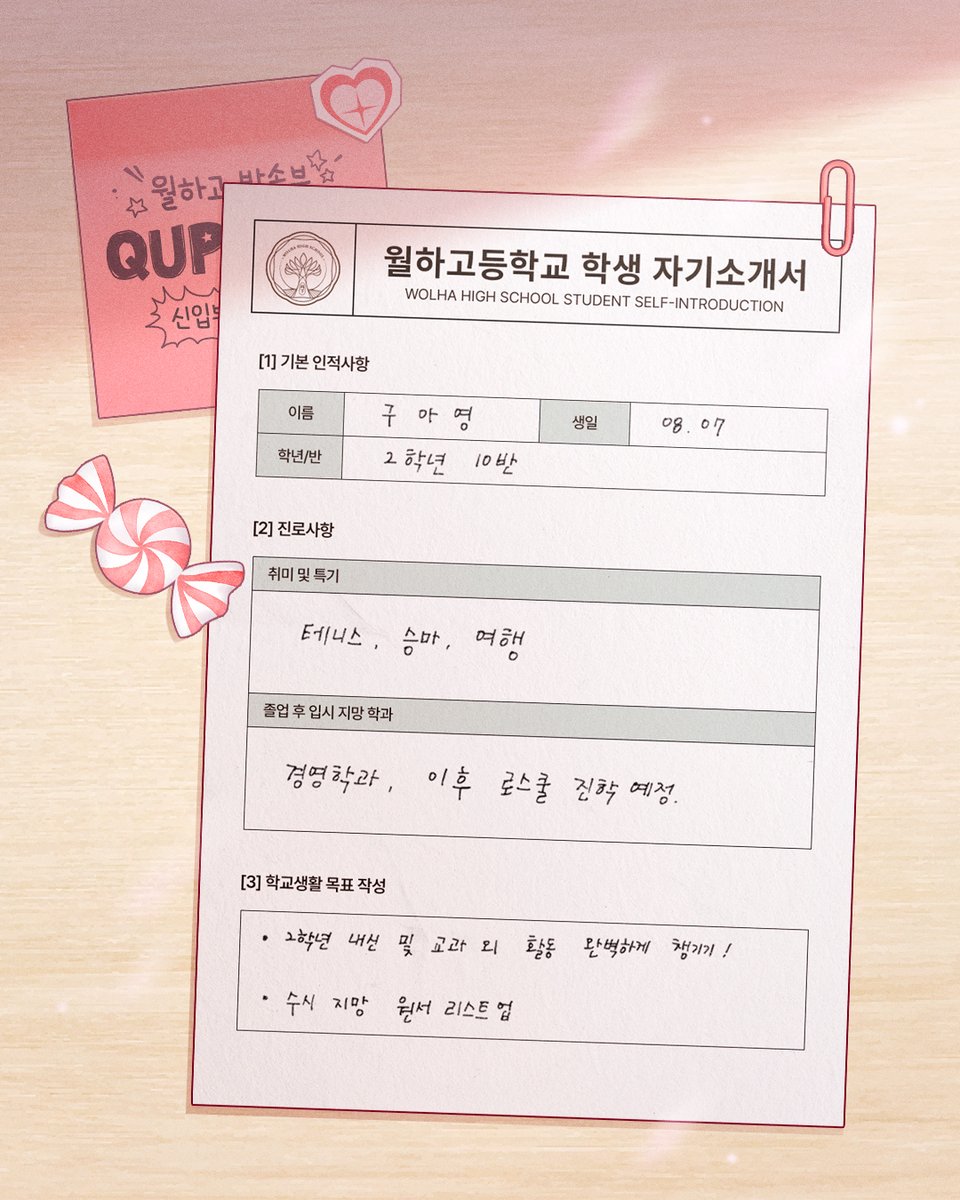 월하고 방송부
QUP
신입부
WOLHA HIGH SCHOOL
월하고등학교 학생 자기소개서
WOLHA HIGH SCHOOL STUDENT SELF-INTRODUCTION
[1] 기본 인적사항
이름 구아영 생일 08.07
학년/반 2학년 10반
[2] 진로사항
취미 및 특기
테니스, 승마, 여행
졸업 후 입시 지망 학과
경영학과, 이후 로스쿨 진학 예정.
[3] 학교생활 목표 작성
• 2학년 내신 및 교과 외 활동 완벽하게 챙기기!
• 수시 지망 원서 리스트업